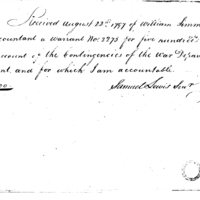 Received August 22d. 1797 of William Simm
countant a warrant No. 2275 for five hundred
ccount of the Contingencies of the War Depar
nt. and for which I am accountable.
Samuel Lewis Senr.